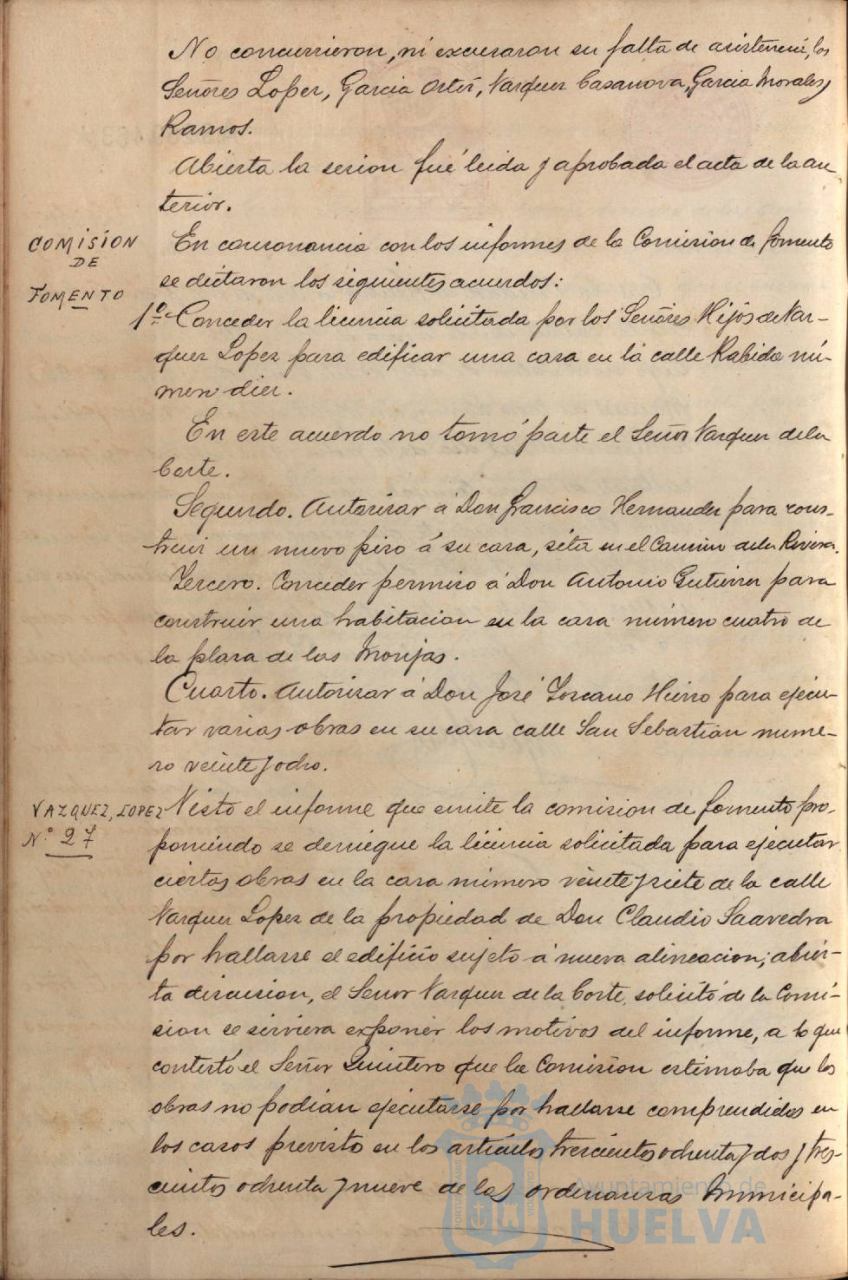 No concurrieron, ni excusaron su falta de asistencia, los
Señores Lopez, Garcia Ortiz, Vazquez Casanova, Garcia Morales y
Ramos.
Abierta la sesion fué leida y aprobada el acta de la an
terior.
COMISION
DE
FOMENTO
En consonancia con los informes de la Comision de fomento
se dictaron los siguientes acuerdos:
1º Conceder la licencia solicitada por los Señores Hijos de Vaz-
quez Lopez para edificar una casa en la calle Rabida nú-
mero diez.
En este acuerdo no tomó parte el Señor Vazquez de la
Corte.
Segundo. Autorizar á Don Francisco Hernandez para cons-
truir un nuevo piso á su casa, sita en el Camino de la Rivera.
Tercero. Conceder permiso á Don Antonio Gutierrez para
construir una habitacion en la casa número cuatro de
la plaza de las Monjas.
Cuarto. Autorizar á Don José Toscano Hierro para ejecu-
tar varias obras en su casa calle San Sebastian nume-
ro veinte y ocho.
VAZQUEZ, LOPEZ
N.º 27
Visto el informe que emite la comision de fomento pro-
poniendo se deniegue la licencia solicitada para ejecutar
ciertas obras en la casa número veinte y siete de la calle
Vazquez Lopez de la propiedad de Don Claudio Saavedra
por hallarse el edificio sujeto á nueva alineacion; abier-
ta discusion, el Señor Vazquez de la Corte, solicitó de la Comi-
sion se sirviera exponer los motivos del informe, a lo que
contestó el Señor Quintero que la Comision estimaba que las
obras no podian ejecutarse por hallarse comprendidas en
los casos previsto en los artículos trescientos ochenta y dos y tres-
cientos ochenta y nueve de las ordenanzas Municipa-
les.
Ayuntamiento de
HUELVA